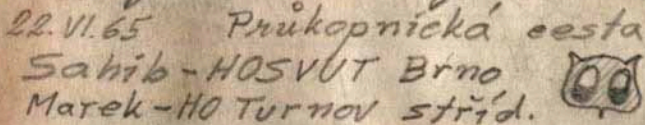 22.VI.65 Průkopnická cesta
Sahib-HOSVUT Brno
Marek-HO Turnov stříd.